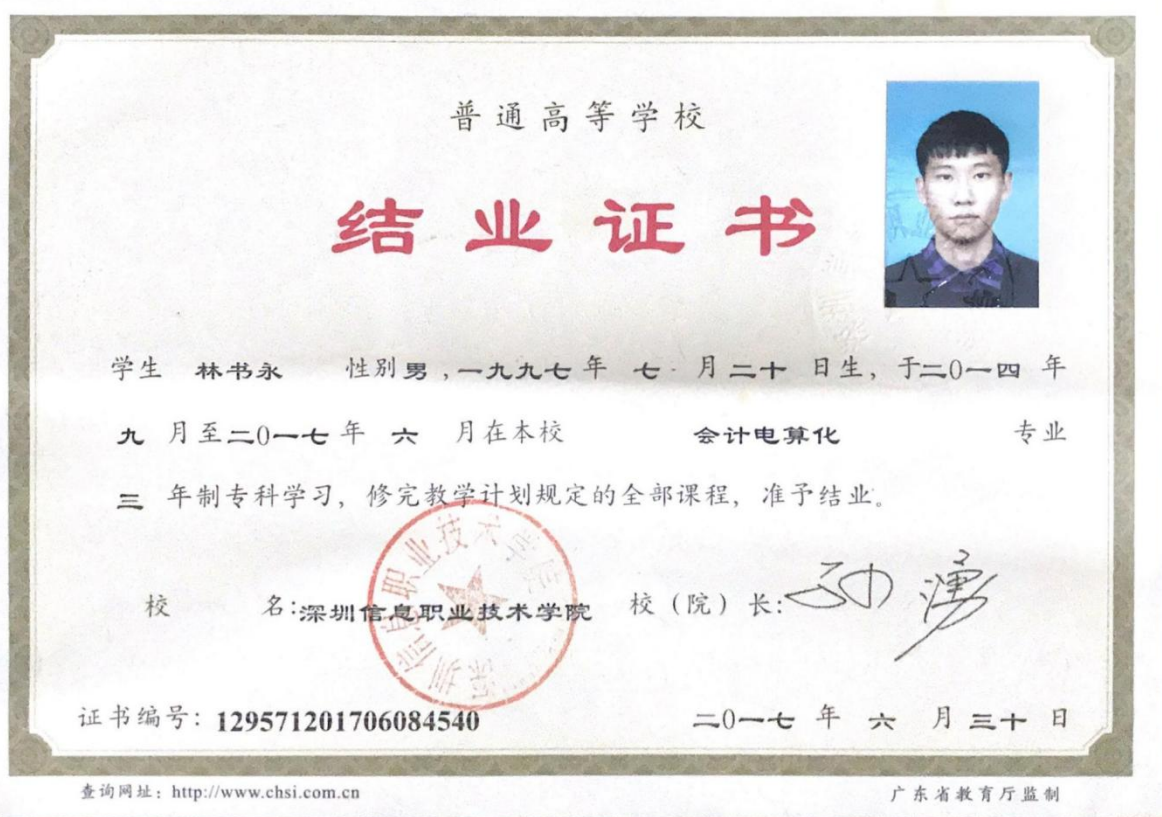 普通高等学校
结业证书
学生 林书永 性别男,一九九七年 七 月二十 日生, 于二0一四 年
九 月至二0一七年 六 月在本校 会计电算化 专业
三 年制专科学习, 修完教学计划规定的全部课程, 准予结业。
校 名:深圳信息职业技术学院 校(院)长:
深圳信息职业技术学院
证书编号: 129571201706084540 二0一七 年 六 月三十 日
查询网址: http://www.chsi.com.cn 广东省教育厅监制